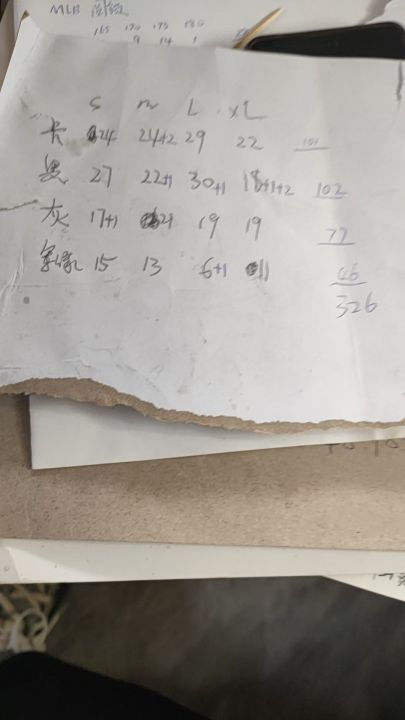 MLB
165 170 175 180
9 14 1
S m L XL
卡 24 24+2 29 22 101
黑 27 22+1 30+1 18+1+2 102
灰 17+1 21 19 19 77
军绿 15 13 6+1 11 46
326